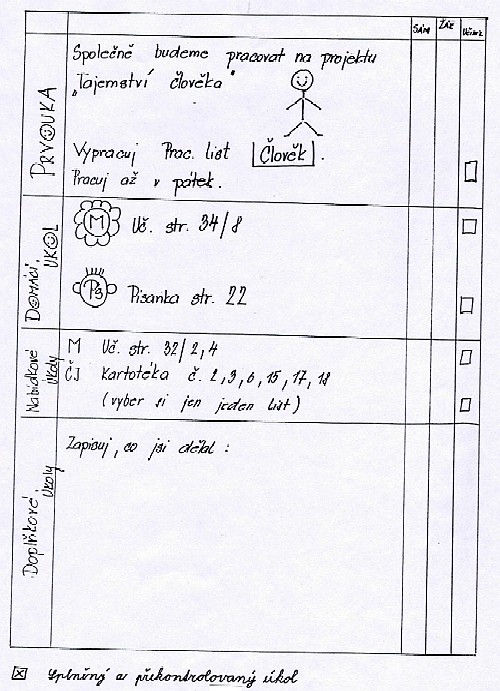 SÁM ŽÁK Učitel
PRVOUKA
Společně budeme pracovat na projektu
„Tajemství člověka"
Vypracuj Prac. list Člověk.
Pracuj až v pátek.
DOMÁCÍ ÚKOL
M Uč. str. 34/8
Ps Písanka str. 22
Nabídkové úkoly
M Uč. str. 32/2,4
ČJ Kartotéka č. 2,3,6,15,17,18
(vyber si jen jeden list)
Doplňkové úkoly
Zapisuj, co jsi dělal:
Splněný a překontrolovaný úkol